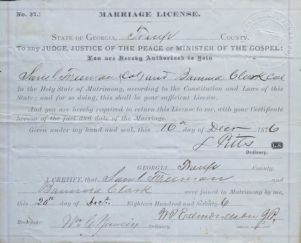 No. 37.
MARRIAGE LICENSE.
STATE OF GEORGIA, Troup COUNTY.
To any JUDGE, JUSTICE OF THE PEACE or MINISTER OF THE GOSPEL:
You are Hereby Authorized to Join
Saml Freeman Col and Clark Col
In the Holy State of Matrimony, according to the Constitution and Laws of this
State; and for so doing, this shall be your sufficient License.
And you are hereby required to return this License to me, with your Certificate
hereon of the fact and date of the Marriage.
Given under my hand and seal, this 16th day of Decr 1876
Pitts L.S.
Ordinary.
GEORGIA, Troup County.
I CERTIFY, that Saml Freeman and
Clark were joined in Matrimony by me,
this 20th day of Eighteen Hundred and Seventy 6
J.P.
Recorded
Ordinary